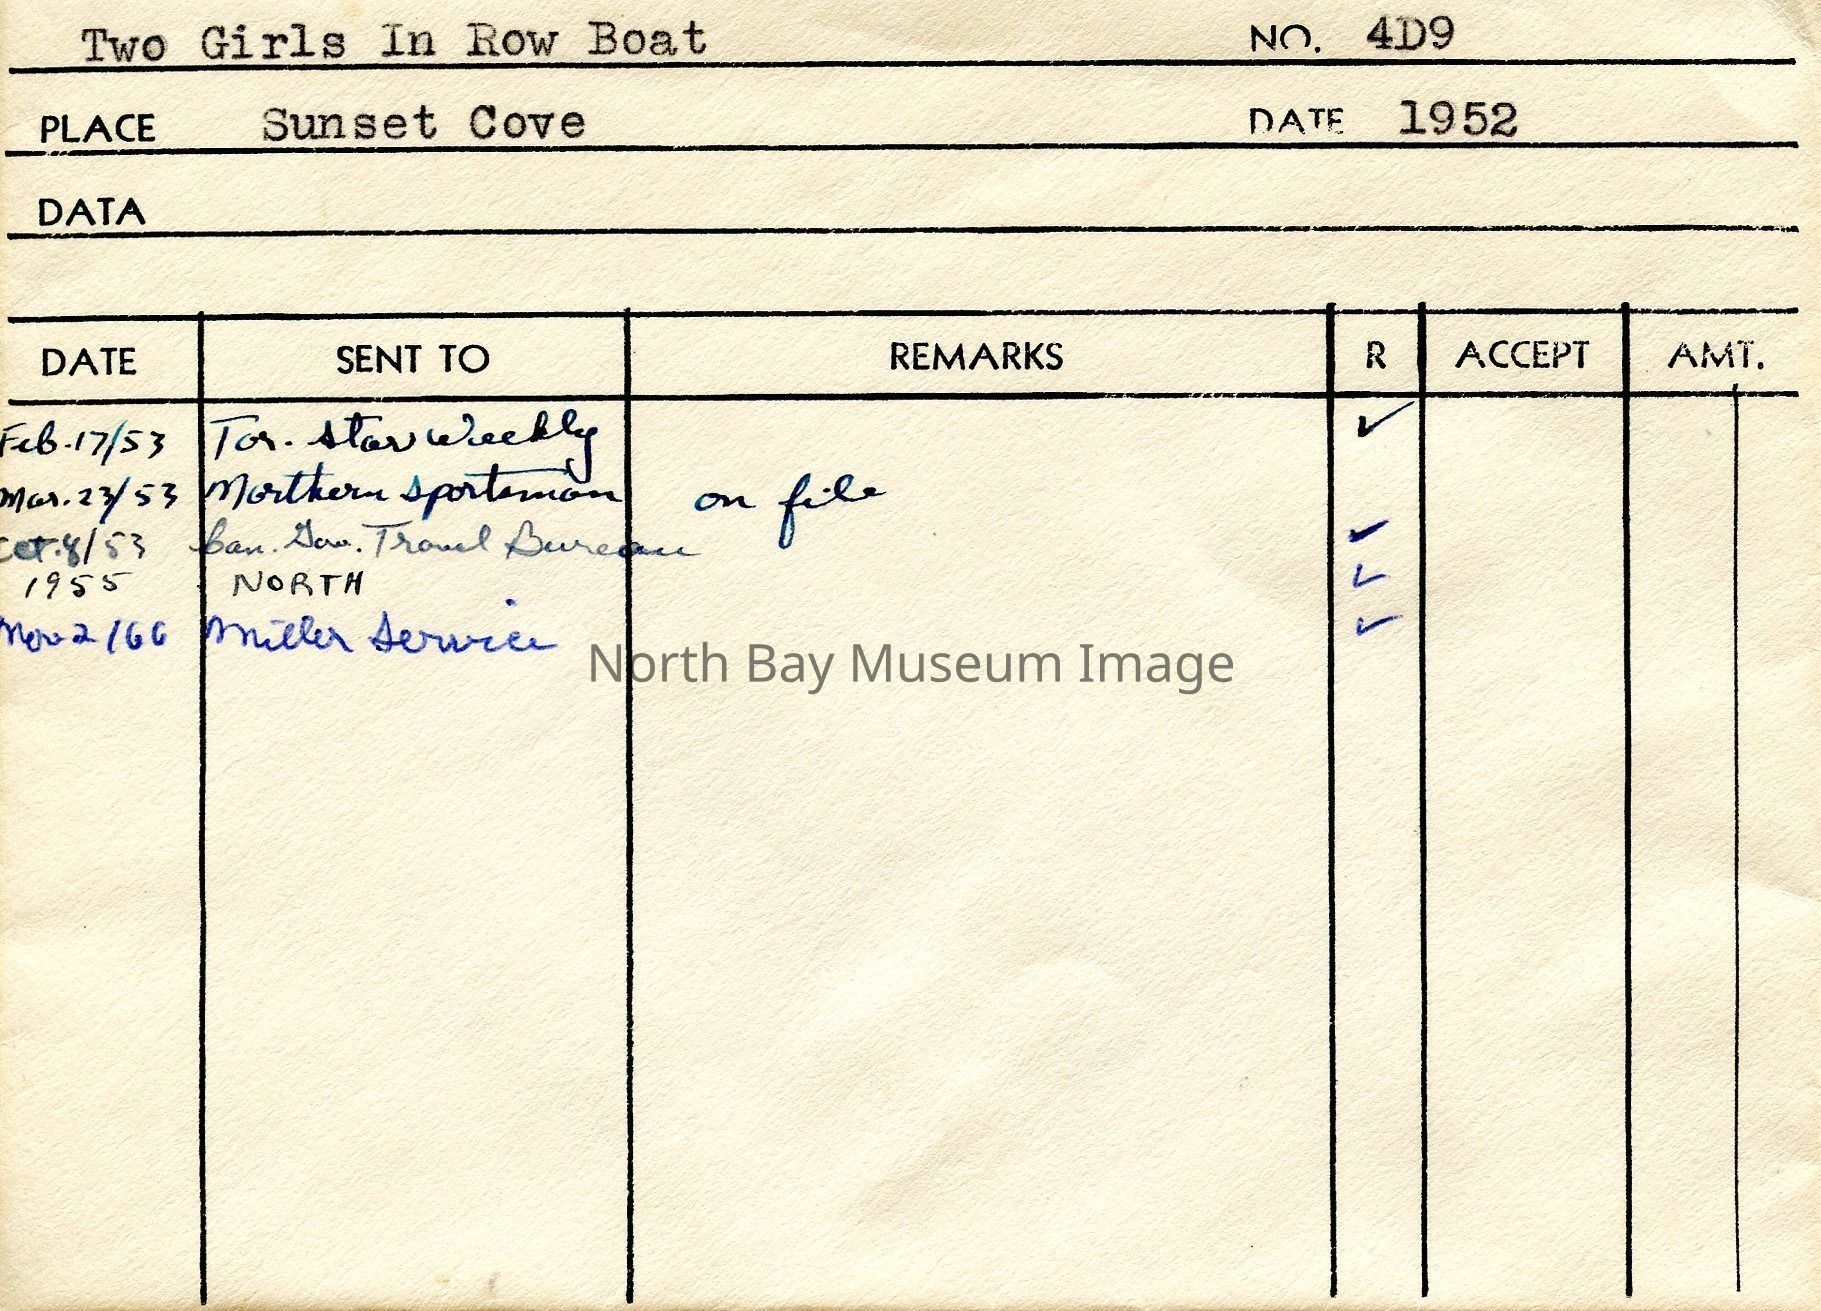 Two Girls In Row Boat NO. 4D9
PLACE Sunset Cove DATE 1952
DATA
DATE SENT TO REMARKS R ACCEPT AMT.
Feb.17/53 Tor. Star Weekly ✓
Mar.23/53 Northern Sportsman on file
Oct.8/53 Can. Gov. Travel Bureau ✓
1955 NORTH ✓
Nov 2/66 Miller Service ✓
North Bay Museum Image